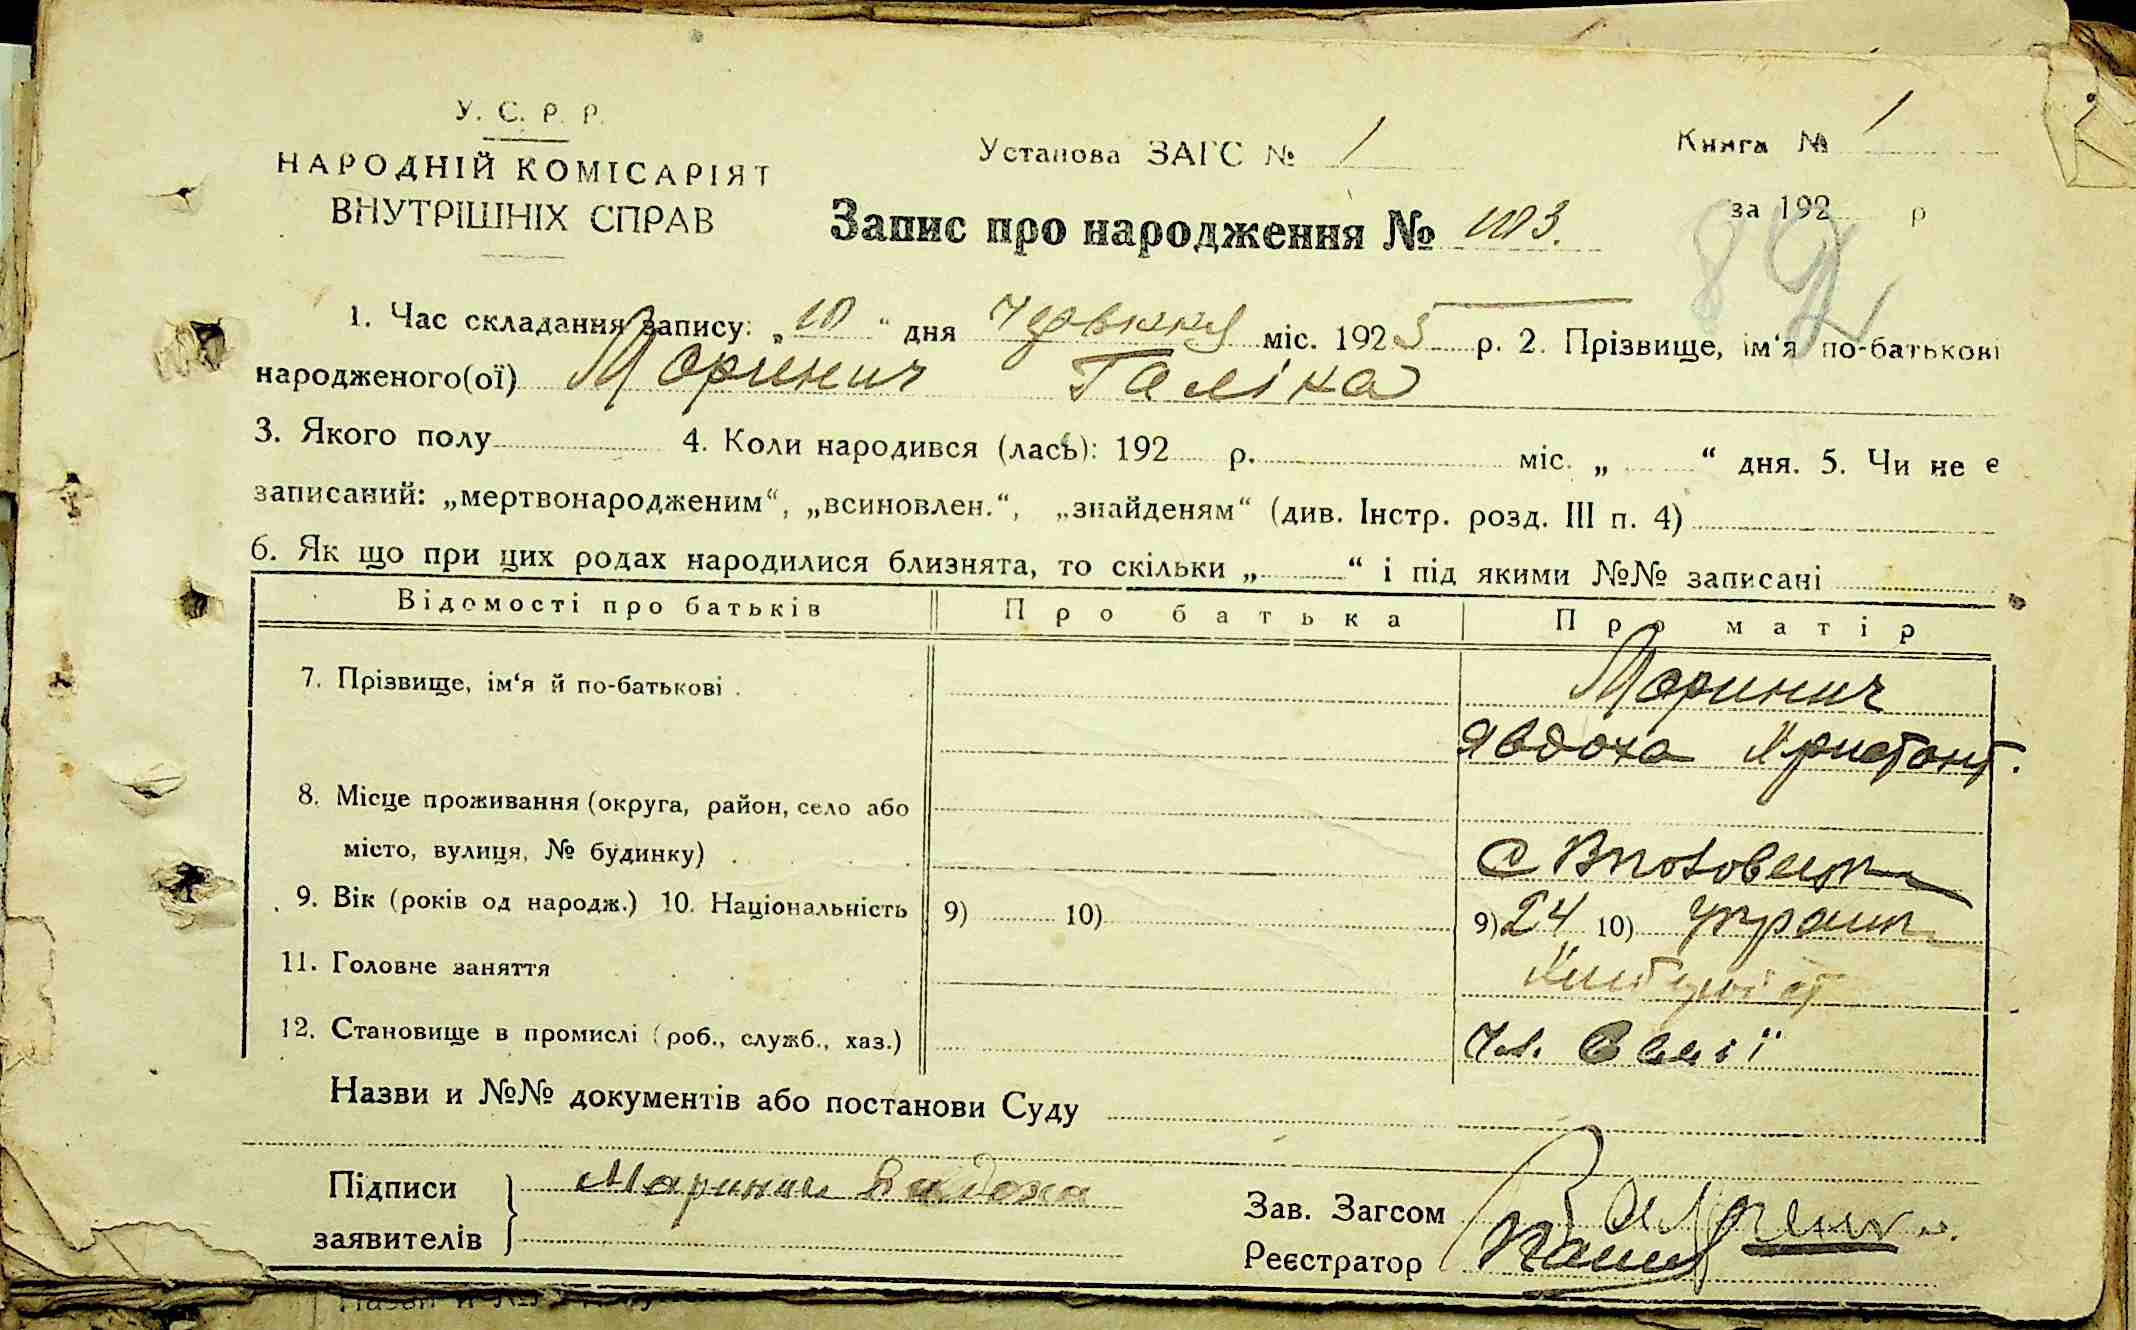 У. С. Р. Р.
НАРОДНІЙ КОМІСАРІЯТ
ВНУТРІШНІХ СПРАВ
Установа ЗАГС № 1
Книга № 1
за 192 р
Запис про народження № 1113.
1. Час складання запису: „10“ дня Червня міс. 1925 р. 2. Прізвище, ім‘я по-батькові
народженого(ої) Маринич Галіна
3. Якого полу 4. Коли народився (лась): 192 р. міс. „ “ дня. 5. Чи не є
записаний: „мертвонародженим“, „всиновлен.“, „знайденям“ (див. Інстр. розд. III п. 4)
6. Як що при цих родах народилися близнята, то скільки „ “ і під якими №№ записані
Відомості про батьків Про батька Про матір
7. Прізвище, ім‘я й по-батькові . Маринич
Явдоха
8. Місце проживання (округа, район, село або
місто, вулиця, № будинку) . с
9. Вік (років од народж.) 10. Національність 9) 10) 9) 24 10) Україн
11. Головне заняття
12. Становище в промислі (роб., служб., хаз.) Чл. сем'ї
Назви и №№ документів або постанови Суду
Підписи
заявителів
Маринич Явдоха
Зав. Загсом
Реєстратор